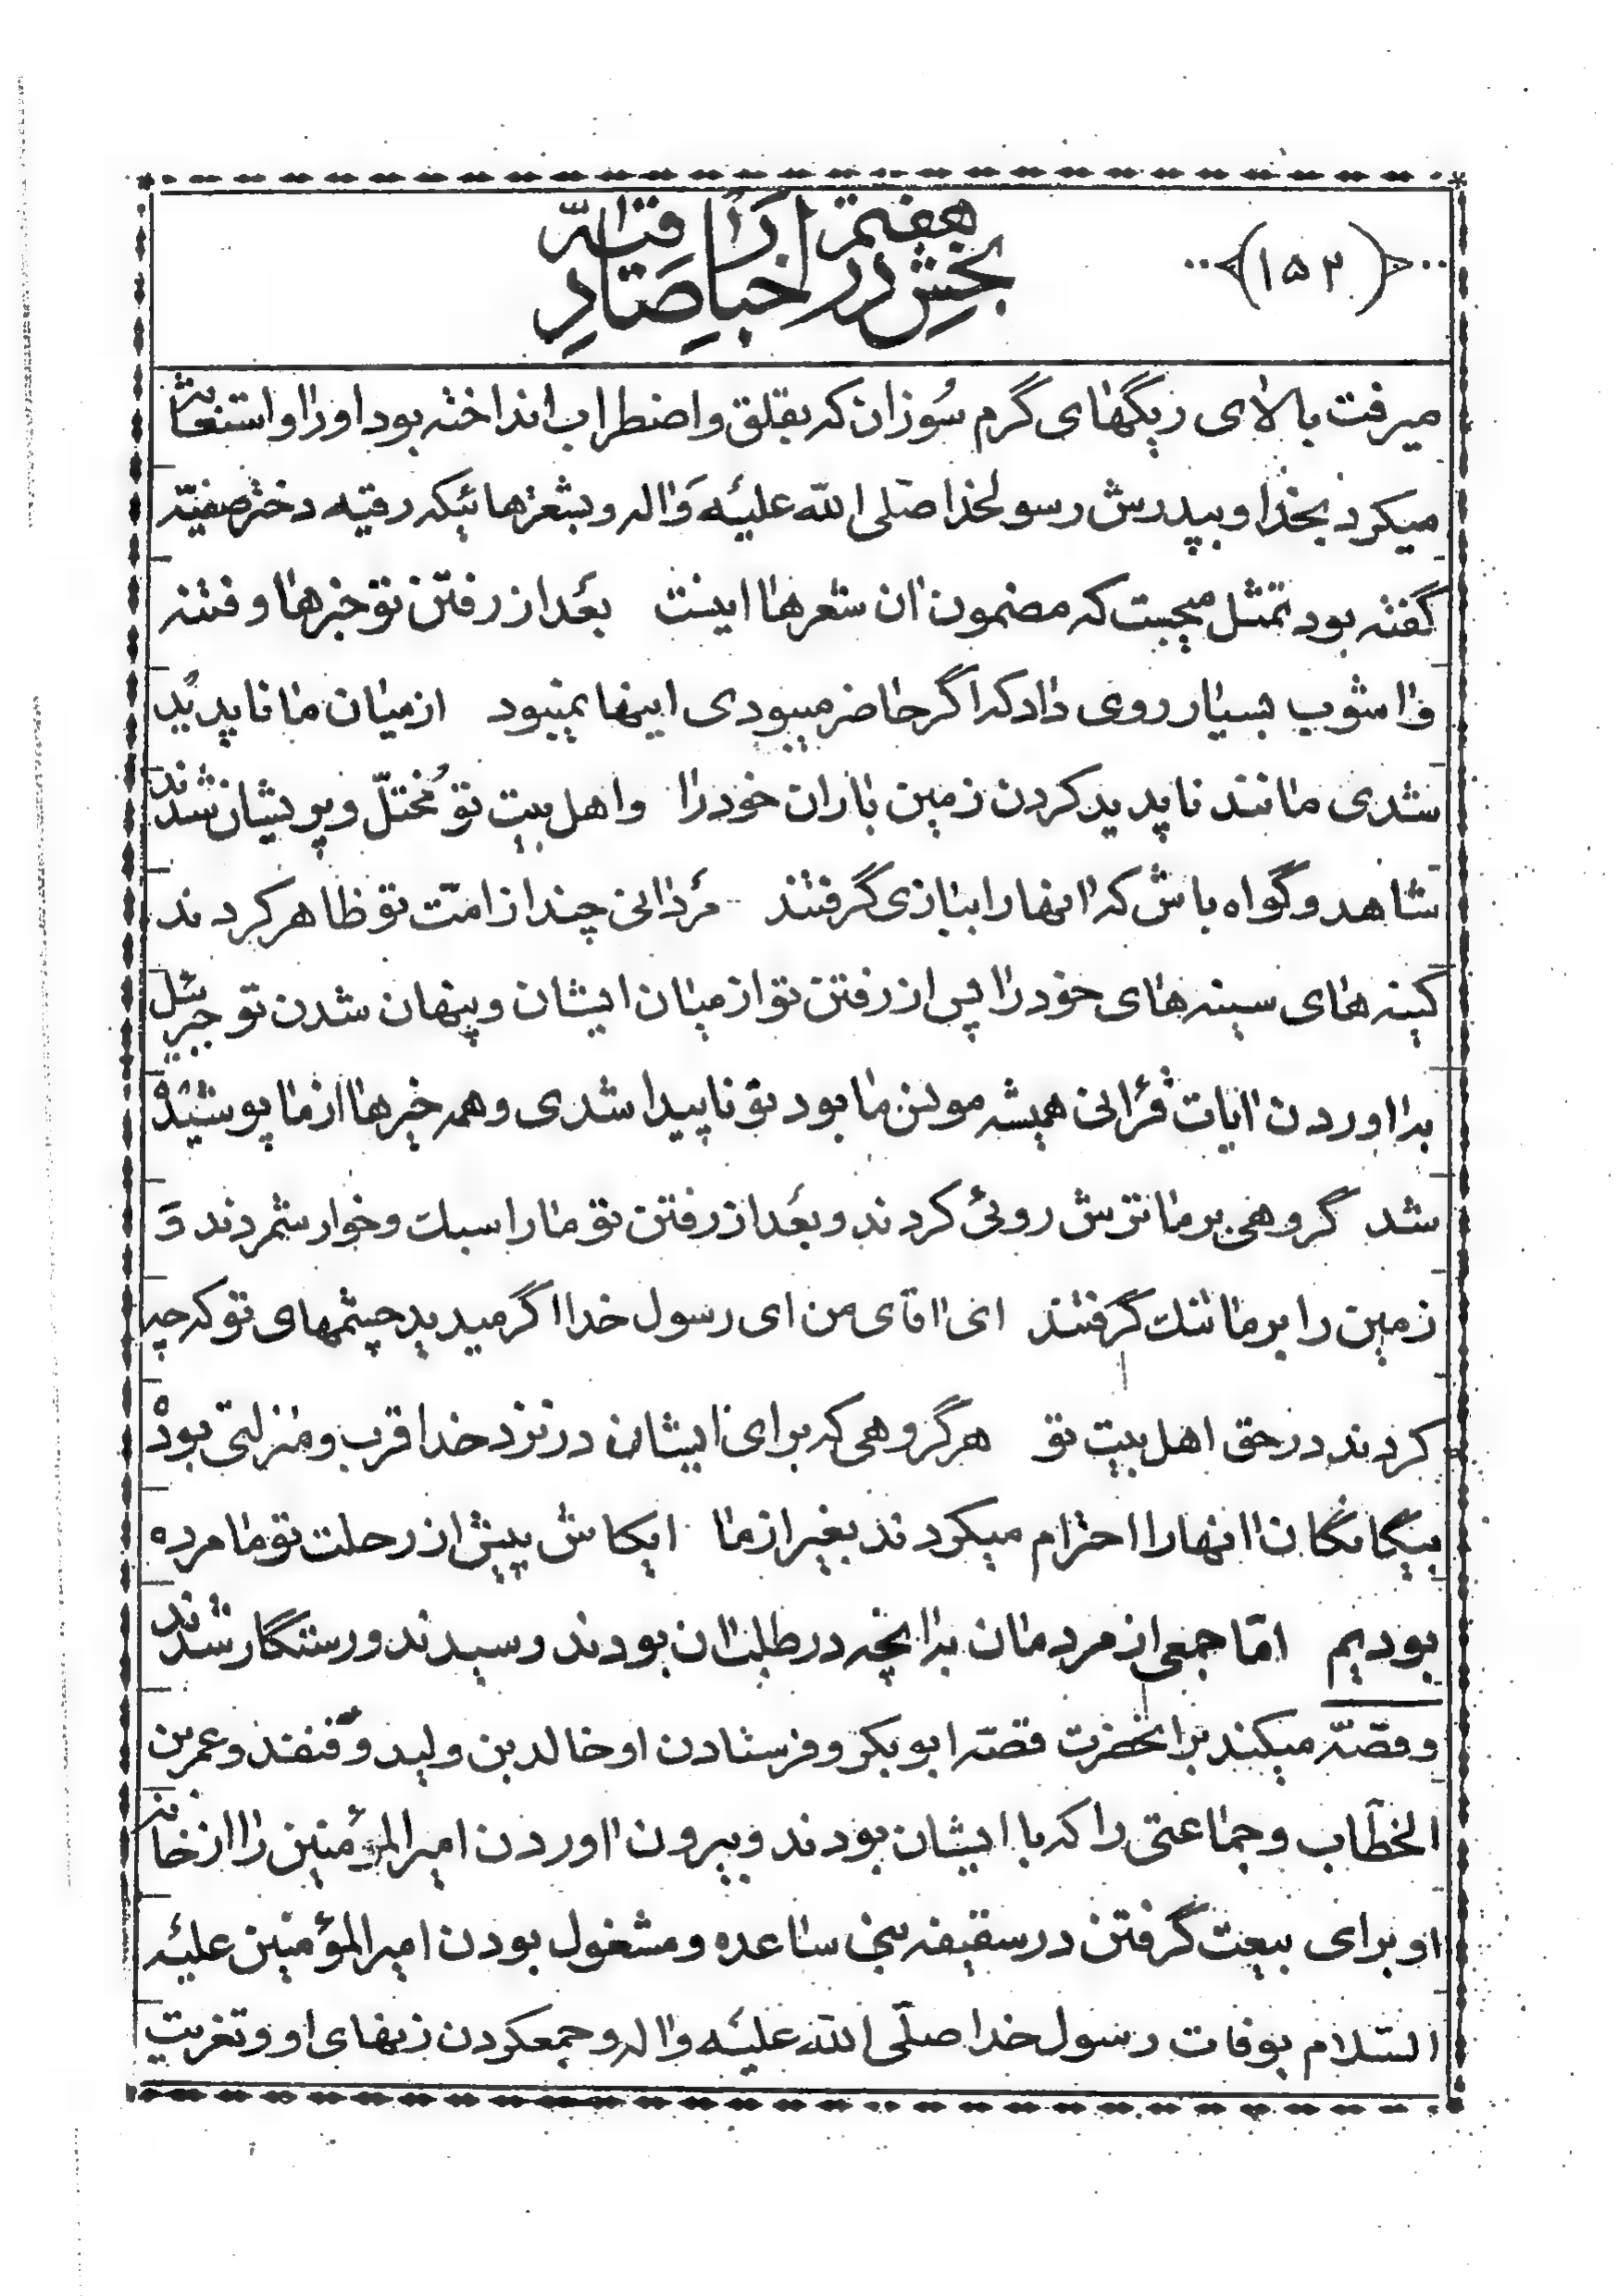 (۱۵۳)
بخش هفتم در اخبار صادقیه
میرفت بالای ریگهای گرم سوزان که بقلق و اضطراب انداخته بود او را و استغاثه
میکرد بخدا و بپدرش رسولخدا صلی الله علیه واله و بشعرهائیکه رقیه دختر صفیه
گفته بود تمثل میجست که مضمون ان شعرها اینست بعد از رفتن تو خبرها و فتنه
و اشوب بسیار روی داد که اگر حاضر میبودی اینها نمیبود از میان ما ناپدید
شدی مانند ناپدید کردن زمین باران خود را و اهل بیت تو مختلّ و پریشان شدند
شاهد و گواه باش که انها را ببازی گرفتند مردانی چند از امّت تو ظاهر کردند
کینه های سینه های خود را پس از رفتن تو از میان ایشان و پنهان شدن تو جبرئیل
به اوردن ایات قرانی همیشه مونس ما بود تو ناپیدا شدی و همه خبرها از ما پوشیده
شد گروهی بر ما ترش روئی کردند و بعد از رفتن تو ما را سبک و خوار شمردند و
زمین را بر ما تنک گرفتند ای اقای من ای رسول خدا اگر میدید چشمهای تو که چه
کردند در حق اهل بیت تو هر گروهی که برای ایشان در نزد خدا قرب و منزلتی بوده
بیگانگان انها را احترام میکردند بغیر از ما ایکاش پیش از رحلت تو ما مرده
بودیم امّا جمعی از مردمان به انچه در طلب ان بودند رسیدند و رستگار شدند
و قصّه میکند بر انحضرت قصّه ابو بکر و فرستادن او خالد بن ولید و قنفذ و عمر بن
الخطّاب و جماعتی را که با ایشان بودند و بیرون اوردن امیر المؤمنین را از خانه
او برای بیعت گرفتن در سقیفه بنی ساعده و مشغول بودن امیر المؤمنین علیه
السّلام بوفات رسول خدا صلّی الله علیه واله و جمعکردن زنهای او و تعزیت